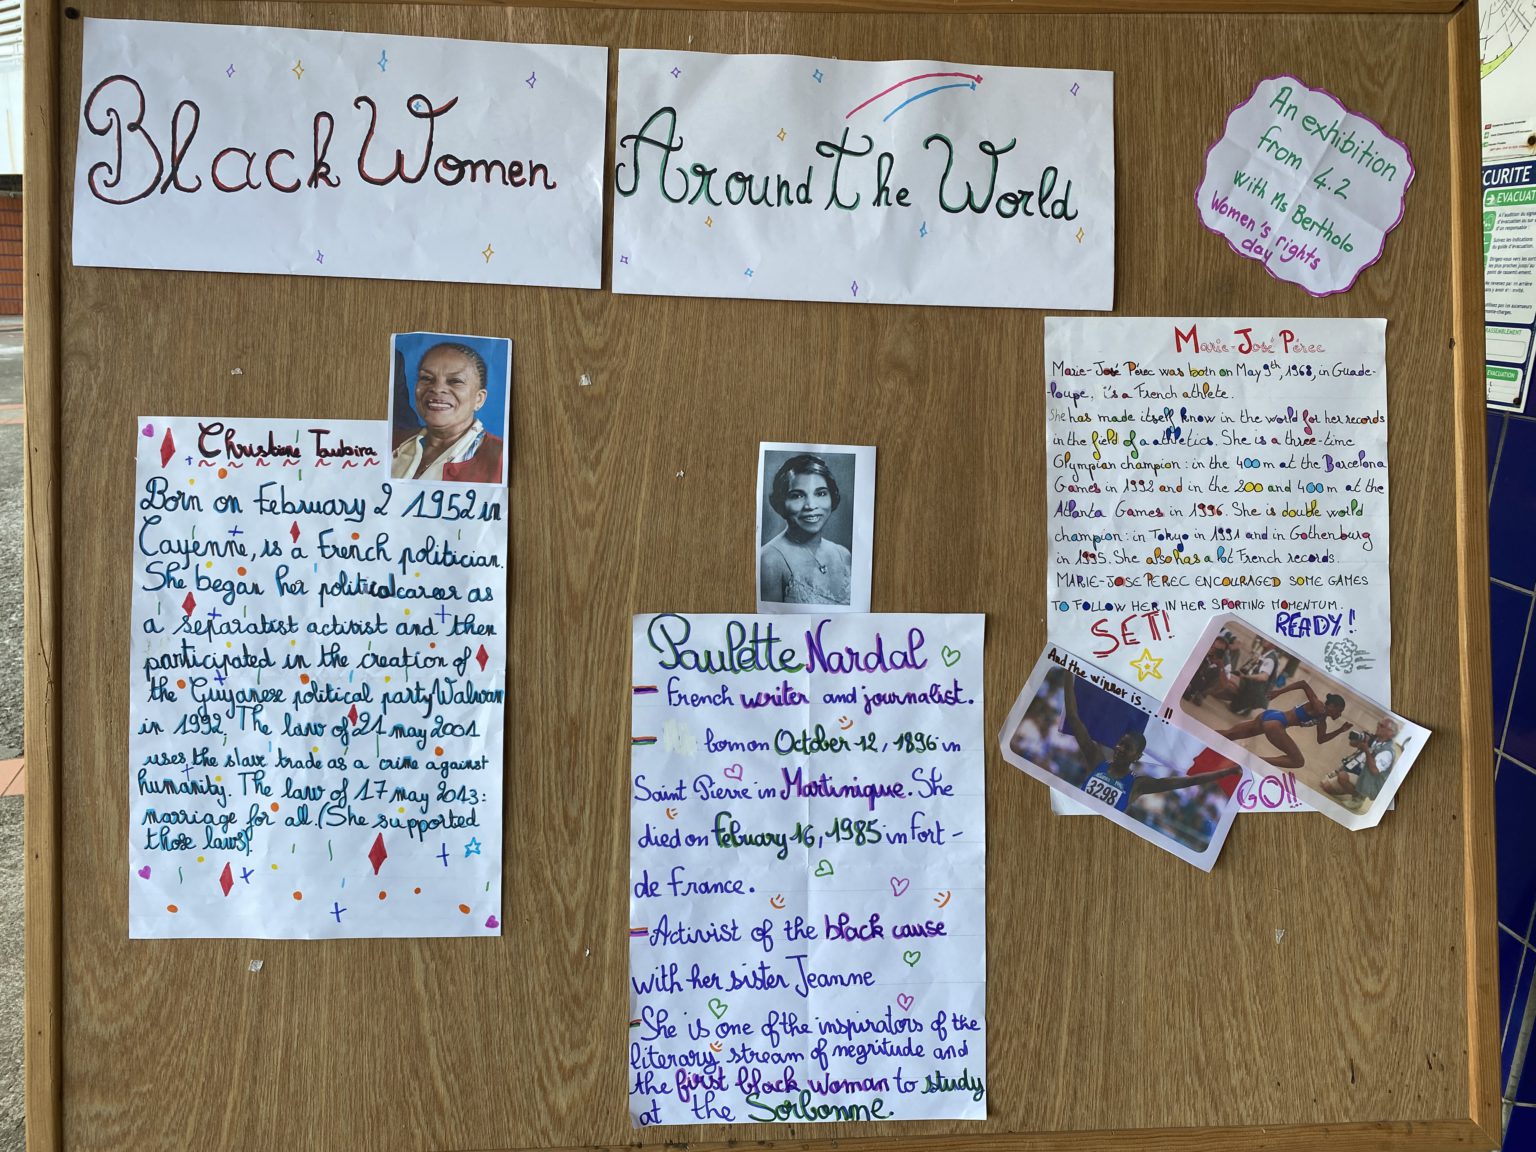 Black Women
Around The World
An exhibition
from 4.2
with Ms Bertholo
Women's rights
day
Christiane Taubira
Born on February 2 1952 in
Cayenne, is a French politician.
She began her political career as
a separatist activist and then
participated in the creation of
the Guyanese political party Walwan
in 1992. The law of 21 may 2001
uses the slave trade as a crime against
humanity. The law of 17 may 2013:
marriage for all. (She supported
those laws).
Paulette Nardal
French writer and journalist.
born on October 12, 1896 in
Saint Pierre in Martinique. She
died on Febuary 16, 1985 in Fort-
de France.
Activist of the black cause
with her sister Jeanne
She is one of the inspirators of the
literary stream of negritude and
the first black woman to study
at the Sorbonne.
Marie-José Pérec
Marie-José Pérec was born on May 9th, 1968, in Guade-
loupe, is a French athlete.
She has made itself know in the world for her records
in the field of a athletics. She is a three-time
Olympian champion: in the 400 m at the Barcelona
Games in 1992 and in the 200 and 400 m at the
Atlanta Games in 1996. She is double world
champion: in Tokyo in 1991 and in Gothenburg
in 1995. She also has a lot French records.
MARIE-JOSE PEREC ENCOURAGED SOME GAMES
TO FOLLOW HER IN HER SPORTING MOMENTUM.
SET!
READY!
And the winner is....!!
3298
GO!!
CURITE
EVACUAT
EVACUATION